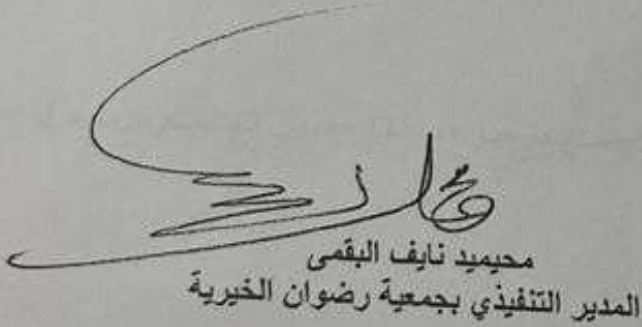 محيميد نايف البقمى
المدير التنفيذي بجمعية رضوان الخيرية